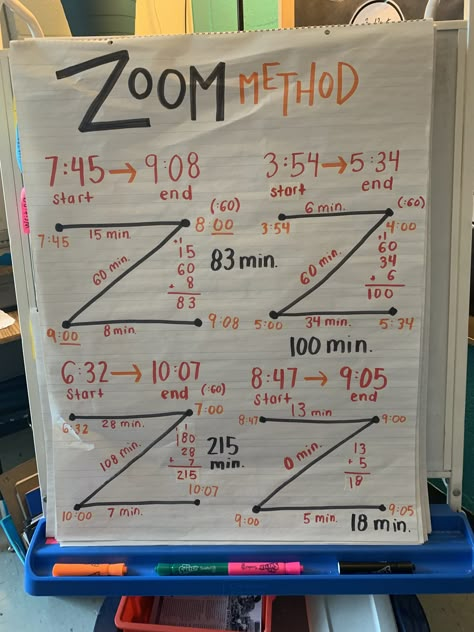 ZOOM METHOD
7:45 → 9:08
start end
3:54 → 5:34
start end
7:45
15 min.
8:00
(:60)
60 min.
+1
15
60
+ 8
83
83 min.
9:00
8 min.
9:08
3:54
6 min.
4:00
(:60)
60 min.
+1
60
34
+ 6
100
5:00
34 min.
5:34
100 min.
6:32 → 10:07
start end
8:47 → 9:05
start end
6:32
28 min.
7:00
(:60)
108 min.
1
180
28
+ 7
215
215
min.
10:00
7 min.
10:07
8:47
13 min
9:00
0 min.
13
+ 5
18
9:00
5 min.
9:05
18 min.